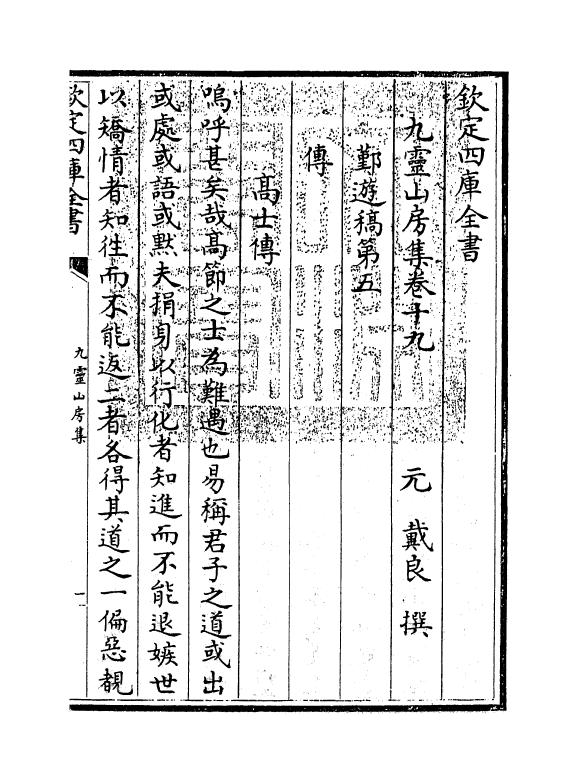 欽定四庫全書
九靈山房集卷十九
元　戴良　撰
鄞遊稿第五
傳
高士傳
嗚呼甚矣哉高節之士為難遇也易稱君子之道或出
或處或語或默夫捐身以行化者知進而不能退嫉世
以矯情者知徃而不能返二者各得其道之一偏惡覩
欽定四庫全書
九靈山房集
一